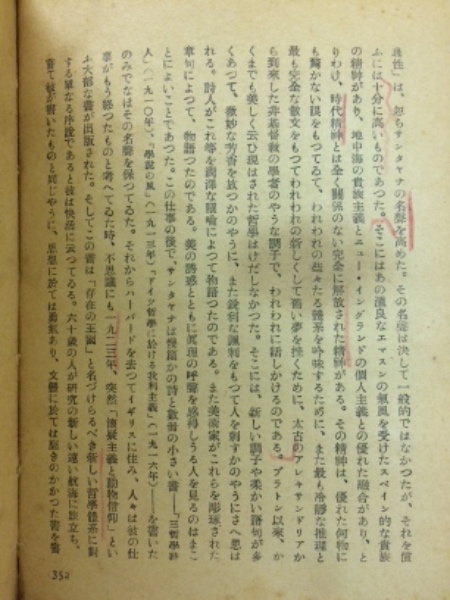 良性」は、忽ちサンタヤナの名聲を高めた。その名聲は決して一般的ではなかつたが、それを償
ふには十分に高いものであつた。そこにはあの溫良なエマスンの氣風を受けたスペイン的な貴族
の精神があり、地中海の貴族主義とニュー・イングランドの個人主義との優れた融合があり、と
りわけ、時代精神とは全く關係のない完全に解放された精神がある。その精神は、優れた何物に
も輝かない眼をもつてゐて、われわれの雄々たる體系を吟味するために、また最も冷靜な推理と
最も完全な散文をもつてわれわれの新しくして舊い夢を挫くために、太古のアレキサンドリアか
ら到來した非基督敎の學者のやうな調子で、われわれに話しかけるのである。プラトン以來、か
くまでも美しく云ひ現はされた哲學はけだしなかつた。そこには、新しい調子や柔かい語句が多
くあつて、微妙な芳香を放つかのやうに、また銳利な諷刺をもつて人を刺すかのやうにさへ思は
れる。詩人がこれ等を潤澤な譬喩によつて物語つたのである。また美術家がこれらを彫琢された
章句によつて、物語つたのである。美の誘惑とともに眞理の呼聲を感得しうる人を見るのはまこ
とによいことであつた。この仕事の後で、サンタヤナは幾篇かの詩と數册の小さい書――「三哲學詩
人」(一九一〇年)、「學說の風」(一九一三年)「ドイツ哲學に於ける我利主義」(一九一六年)――を書いた
のみでなほその名聲を保つてゐた。それからハーバードを去つてイギリスに住み、人々は彼の仕
事がもう終つたものと考へてゐた時、不思議にも一九二三年、突然「懷疑主義と動物信仰」とい
ふ大部な書が出版された。そしてこの書は「存在の王國」と名づけらるべき新しい哲學體系に對
する單なる序說であると彼は快活に云つてゐる。六十歲の人が研究の新しい遠い航海に旅立ち、
嘗て彼が書いたものと同じやうに、思想に於ては勇氣あり、文體に於ては磨きのかかつた書を書
352